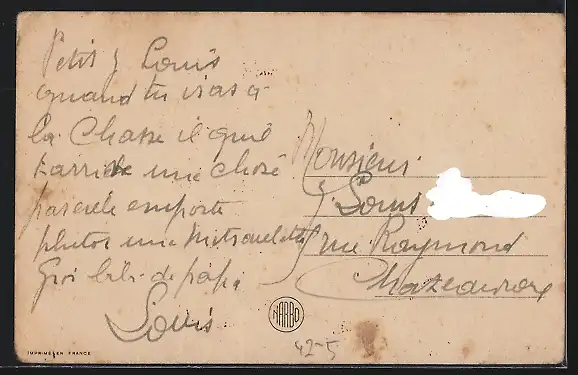 Petit J Louis
quand tu iras a
la Chasse il quil
tarrive une chose
pareile emporte
plutos une Mitraillette
Gros bibi de papa
Louis
Monsieur
J Louis
rue Raymond
Chateauroux
NARBO
42-5
IMPRIMÉ EN FRANCE